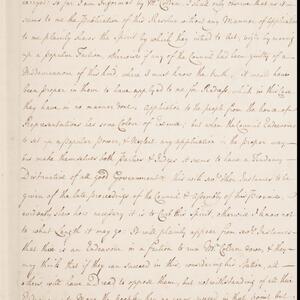 so far I am Informed by Mr. Colden. I shall only observe that as it seems
to me the Publication of this Resolve without any Manner of Application
to me plainly shews the Spirit by which they acted to be, with by
a popular Faction, otherwise if any of the Council had been guilty of a
Misdemeanour of this kind, where I must know the truth, it would have
been proper in them to have applyed to me for Redress, which in this Case
they have in no manner done. application to the people from the house of
Representatives has some Colour of Excuse; but when the Council Endeavour
to set up a popular power, & neglect any application in the proper way
but make themselves both parties & Judges it seems to have a Tendency
Destructive of all good Government; this with several other Instances to be
given of the late proceedings of the Council & Assembly of this Province,
evidently shew how necessary it is to Curb this Spirit, otherwise I know not
to what Length it may go. It will plainly appear from several Instances
that there is an Endeavour in a faction to run Mr. Colden down, & they
may think this if they can succeed in this, considering his Station, all
others will have a Dread to oppose them, but notwithstanding of all their
the people has no